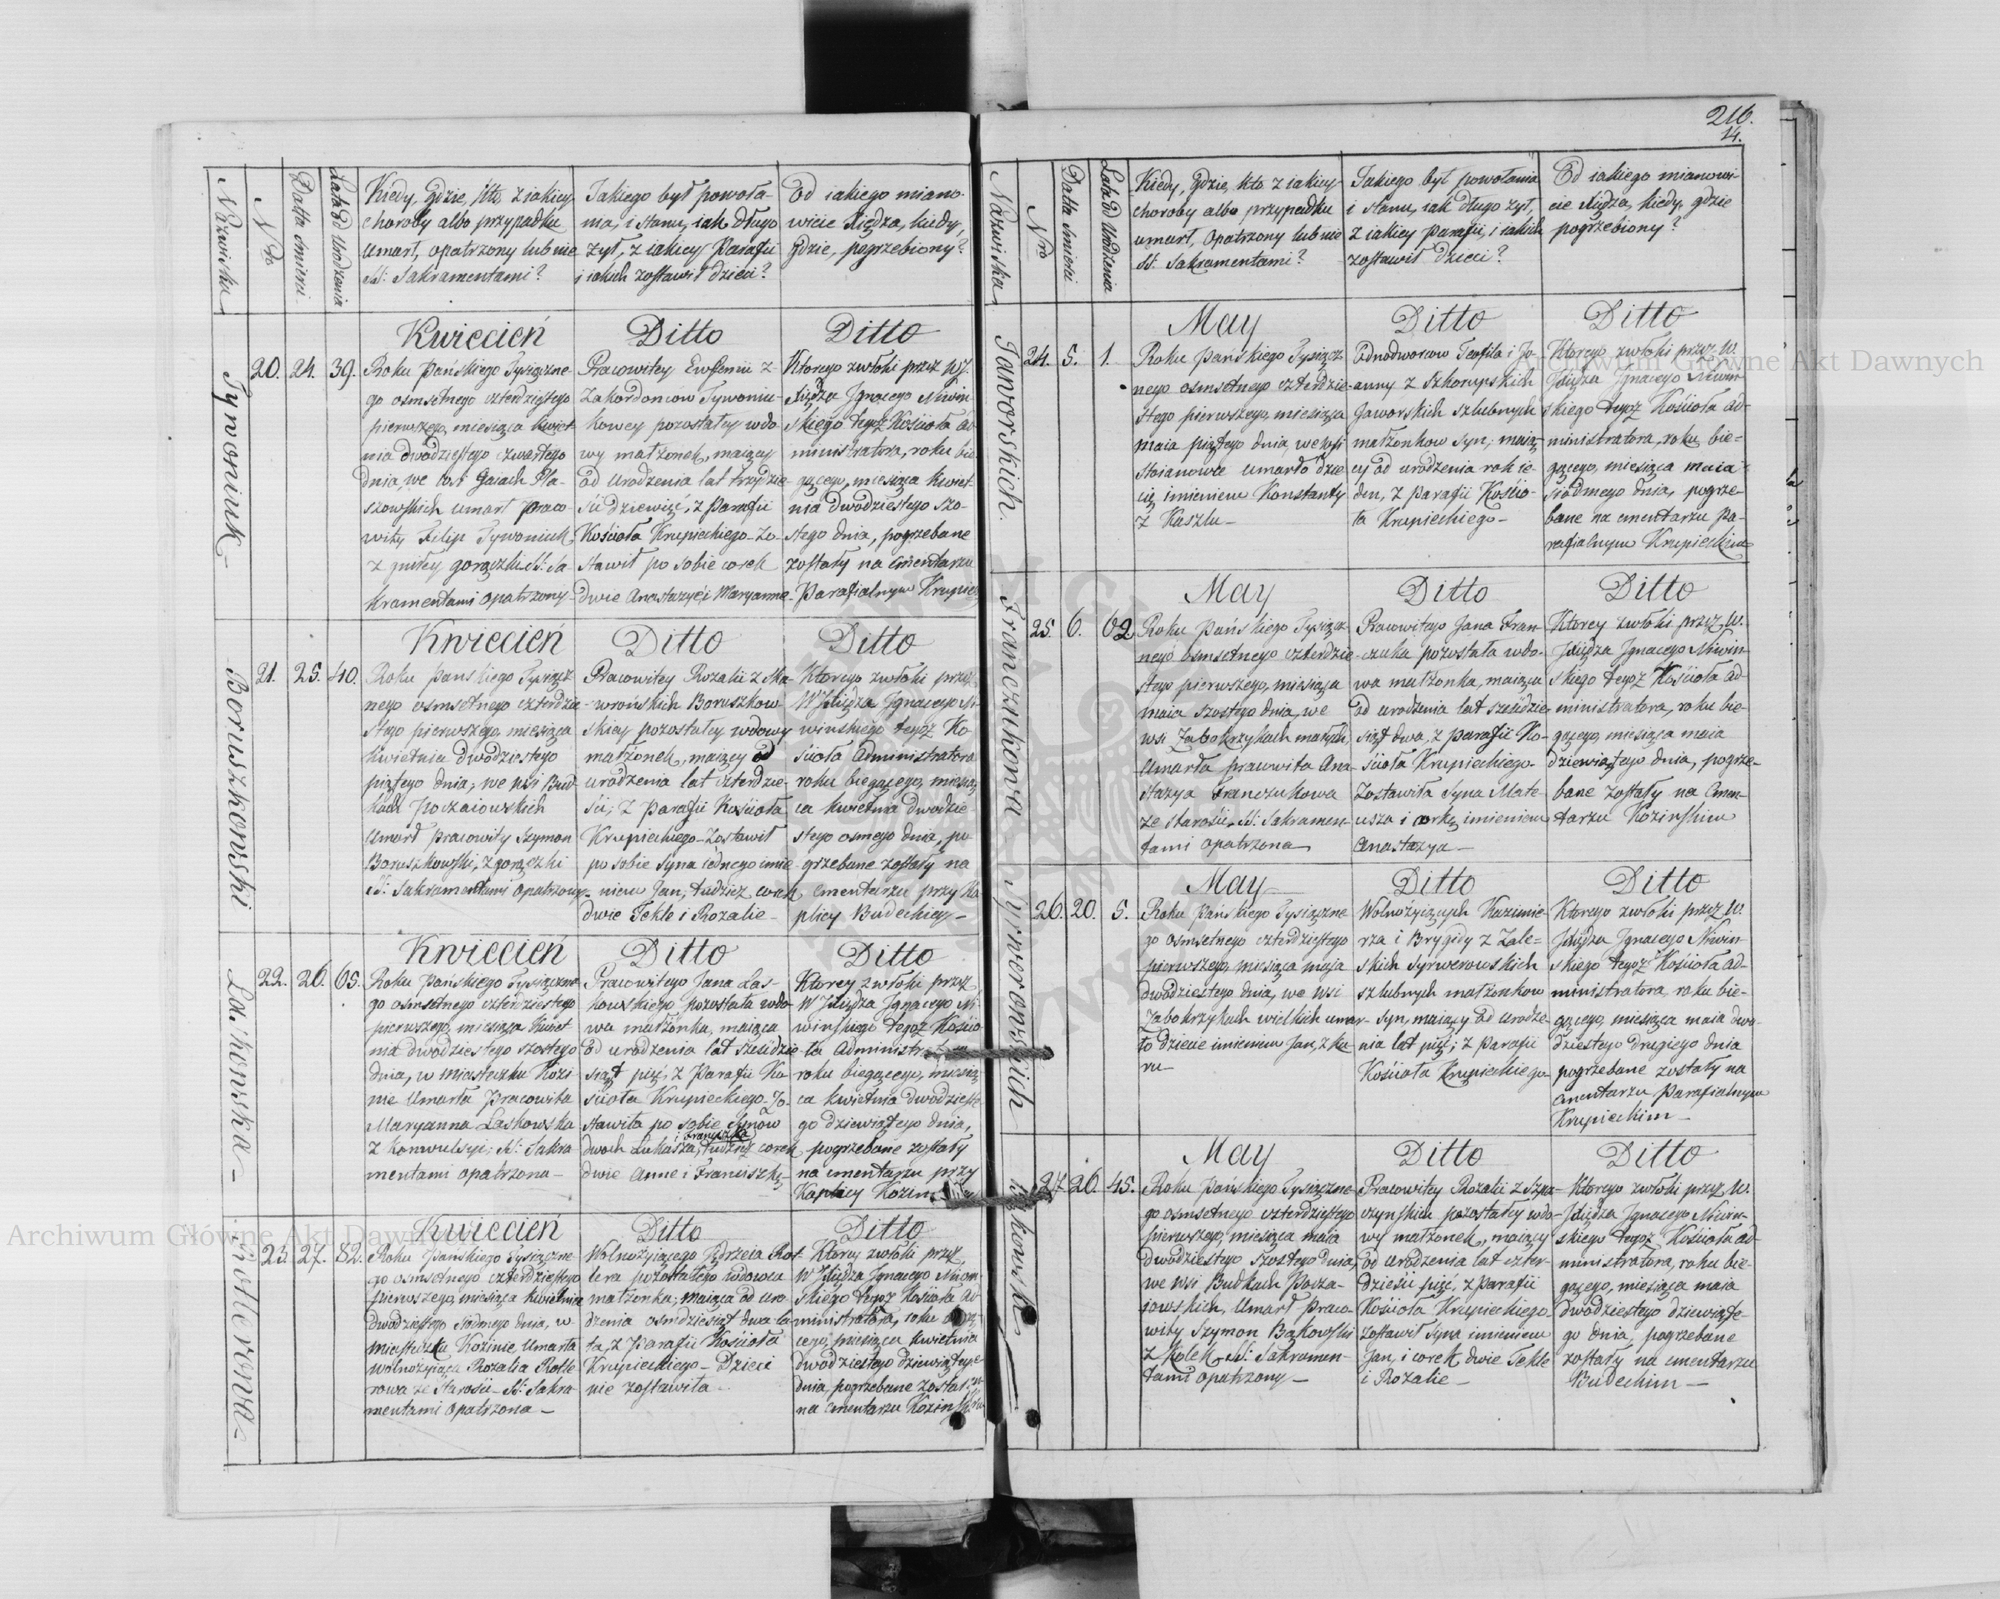 216.
14.
Nazwiska
Nro
Datta śmierci
Lata Od Urodzenia
Kiedy, Gdzie, Kto, z iakiey
choroby albo przypadku
umarł, opatrzony lub nie
SS. Sakramentami?
Jakiego był powoła-
nia, i stanu, iak długo
żył, z iakiey Parafii
i iakich zostawił dzieci?
Od iakiego miano-
wicie Xiędza, kiedy,
gdzie, pogrzebiony?
Tywoniuk
20. 24. 39.
Kwiecień
Roku Pańskiego Tysiączne-
go osmsetnego czterdziestego
pierwszego, miesiąca Kwiet-
nia dwódziestego czwartego
dnia, we wsi Gaiach
umarł praco-
wity Filip Tywoniuk
z gniłey gorączki SS. Sa-
kramentami opatrzony
Ditto
Pracowitey Ewfemii z
Zakordonców Tywoniu-
kowey pozostałey wdo-
wy małżonek, maiący
od urodzenia lat trzydzie-
ści dziewięć, z Parafii
Kościoła Krupieckiego. Zo-
stawił po sobie corek
dwie Anastazyę i Maryannę
Ditto
Ktorego zwłoki przez W.
Xiędza Ignacego Niwin-
skiego tegoż Kościoła Ad-
ministratora, roku bie-
gącego, miesiąca Kwiet-
nia dwodziestego szo-
stego dnia, pogrzebane
zostały na cmentarzu
Parafialnym Krupiec
Boruszkowski
21. 25. 40.
Kwiecień
Roku Pańskiego Tysiącz
nego osmsetnego czterdzie
stego pierwszego, miesiąca
Kwietnia dwudziestego
piątego dnia, we wsi Bud
kach Poczaiowskich
umarł pracowity Szymon
Boruszkowski, z gorączki
SS. Sakramentami opatrzony
Ditto
Pracowitey Rozalii z Ska-
wrońskich Boruszkow
skiey pozostałey wdowy
małżonek, maiący od
urodzenia lat czterdzie-
ści; z Parafii Kościoła
Krupieckiego. Zostawił
po sobie syna iednego imie
niem Jan, tudziez corek
dwie Teklę i Rozalię
Ditto
Ktorego zwłoki przez
W Xiędza Ignacego Ni-
winskiego tegoż Ko
ścioła Administratora
roku biegącego, miesią
ca kwietnia dwodzie
stego osmego dnia, po
grzebane zostały na
cmentarzu przy Ka
plicy Budeckiey
Laskowska
22. 26. 65.
Kwiecień
Roku Pańskiego Tysiączne
go osmsetnego czterdziestego
pierwszego, miesiąca Kwiet
nia dwodziestego szostego
dnia, w miasteczku Kozi
nie umarła Pracowita
Maryanna Laskowska
z konwulsyi; SS. Sakra
mentami opatrzona
Ditto
Pracowitego Jana Las-
kowskiego pozostała wdo
wa małżonka, maiąca
od urodzenia lat sześćdzie
siąt pięć, z Parafii Ko
ścioła Krupieckiego. Zo
stawiła po sobie synow
dwoch Łukasza, i Franciszka tudzież corek
dwie Annę i Franciszkę
Ditto
Ktorey zwłoki przez
W Xiędza Ignacego Ni
winskiego tegoż Kościo
ła Administratora
roku biegącego, miesią
ca kwietnia dwodzieste
go dziewiątego dnia,
pogrzebane zostały
na cmentarzu przy
Kaplicy Kozin
Rotlerowa
23. 27. 82.
Kwiecień
Roku Pańskiego Tysiączne
go osmsetnego czterdziestego
pierwszego, miesiąca kwietnia
dwódziestego siodmego dnia, w
miasteczku Kozinie umarła
wolnożyiąca Rozalia Rotle
rowa ze starości SS. Sakra
mentami opatrzona
Ditto
Wolnożyiącego Jędrzeia Rot-
lera pozostałego wdowca
małżonka; maiąca od uro
dzenia osmdziesiąt dwa la
ta, z Parafii Kościoła
Krupieckiego. Dzieci
nie zostawiła
Ditto
Ktorey zwłoki przez
W Xiędza Ignacego Niwin
skiego tegoż Kościoła Ad
ministratora, roku bieg
cego, miesiąca kwietnia
dwodziestego dziewiątego
dnia pogrzebane zostały
na cmentarzu Kozinskim
Nazwiska
Nro
Datta śmierci
Lata Od Urodzenia
Kiedy, Gdzie, Kto z iakiey
choroby albo przypadku
umarł, opatrzony lub nie
SS. Sakramentami?
Jakiego był powołania
i stanu, iak długo żył,
z iakiey Parafii, i iakich
zostawił dzieci?
Od iakiego mianowi-
cie Xiędza, kiedy, gdzie
pogrzebiony?
Jaworskich
24. 5. 1.
May
Roku Pańskiego Tysiącz
nego osmsetnego czterdzie-
stego pierwszego, miesiąca
maia piątego dnia, we wsi
Stoianowce umarło dzie
cię imieniem Konstanty
z Kaszlu
Ditto
Odnodworcow Teofila i Jo-
anny z Skorupskich
Jaworskich szlubnych
małżonkow syn, maią-
cy od urodzenia rok ie-
den, z Parafii Kościo-
ła Krupieckiego
Ditto
Ktorego zwłoki przez W.
Xiędza Ignacego Niwin-
skiego tegoż Kościoła ad-
ministratora, roku bie-
gącego, miesiąca maia
siodmego dnia, pogrze-
bane na cmentarzu Pa-
rafialnym Krupieckim
Franczukowa
25. 6. 62.
May
Roku Pańskiego Tysiącz
nego osmsetnego czterdzie
stego pierwszego, miesiąca
maia szostego dnia, we
wsi Zabokrzykach małych,
umarła pracowita Ana-
stazya Franczukowa
ze starości SS. Sakramen-
tami opatrzona
Ditto
Pracowitego Jana Fran-
czuka pozostała wdo-
wa małżonka, maiąca
od urodzenia lat sześćdzie
siąt dwa, z Parafii Ko-
ścioła Krupieckiego.
Zostawiła syna Mate-
usza i corkę imieniem
Anastazya
Ditto
Ktorey zwłoki przez W.
Xiędza Ignacego Niwin-
skiego tegoż Kościoła ad-
ministratora, roku bie-
gącego, miesiąca maia
dziewiątego dnia, pogrze-
bane zostały na cmen-
tarzu Kozinskim
Syrwerowskich
26. 20. 5.
May
Roku Pańskiego Tysiączne
go osmsetnego czterdziestego
pierwszego, miesiąca maja
dwodziestego dnia, we wsi
Zabokrzykach wielkich umar-
ło dziecie imieniem Jan, z ku
ru
Ditto
Wolnożyiących Kazimie-
rza i Brygidy z Zale-
skich Syrwerowskich
szlubnych małżonkow
syn, maiący od urodze-
nia lat pięć; z Parafii
Kościoła Krupieckiego
Ditto
Ktorego zwłoki przez W.
Xiędza Ignacego Niwin-
skiego tegoż Kościoła ad-
ministratora, roku bie-
gącego, miesiąca maia dwo-
dziestego drugiego dnia
pogrzebane zostały na
cmentarzu Parafialnym
Krupieckim
27. 26. 45.
May
Roku Pańskiego Tysiączne
go osmsetnego czterdziestego
pierwszego, miesiąca maia
dwodziestego szostego dnia,
we wsi Budkach Pocza-
jowskich, umarł Praco-
wity Szymon Bąkowski
z Kolek, SS. Sakramen-
tami opatrzony
Ditto
Pracowitey Rozalii z Szpa-
czynskich pozostałey wdo-
wy małżonek, maiący
od urodzenia lat czter-
dzieści pięć, z Parafii
Kościoła Krupieckiego.
Zostawił syna imieniem
Jan, i corek dwie Teklę
i Rozalię
Ditto
Ktorego zwłoki przez W.
Xiędza Ignacego Niwin-
skiego tegoż Kościoła ad-
ministratora, roku bie-
gącego, miesiąca maia
dwodziestego dziewiąte-
go dnia, pogrzebane
zostały na cmentarzu
Budeckim
Archiwum Główne Akt Dawnych
Archiwum Główne Akt Dawnych
Archiwum Główne Akt Dawnych